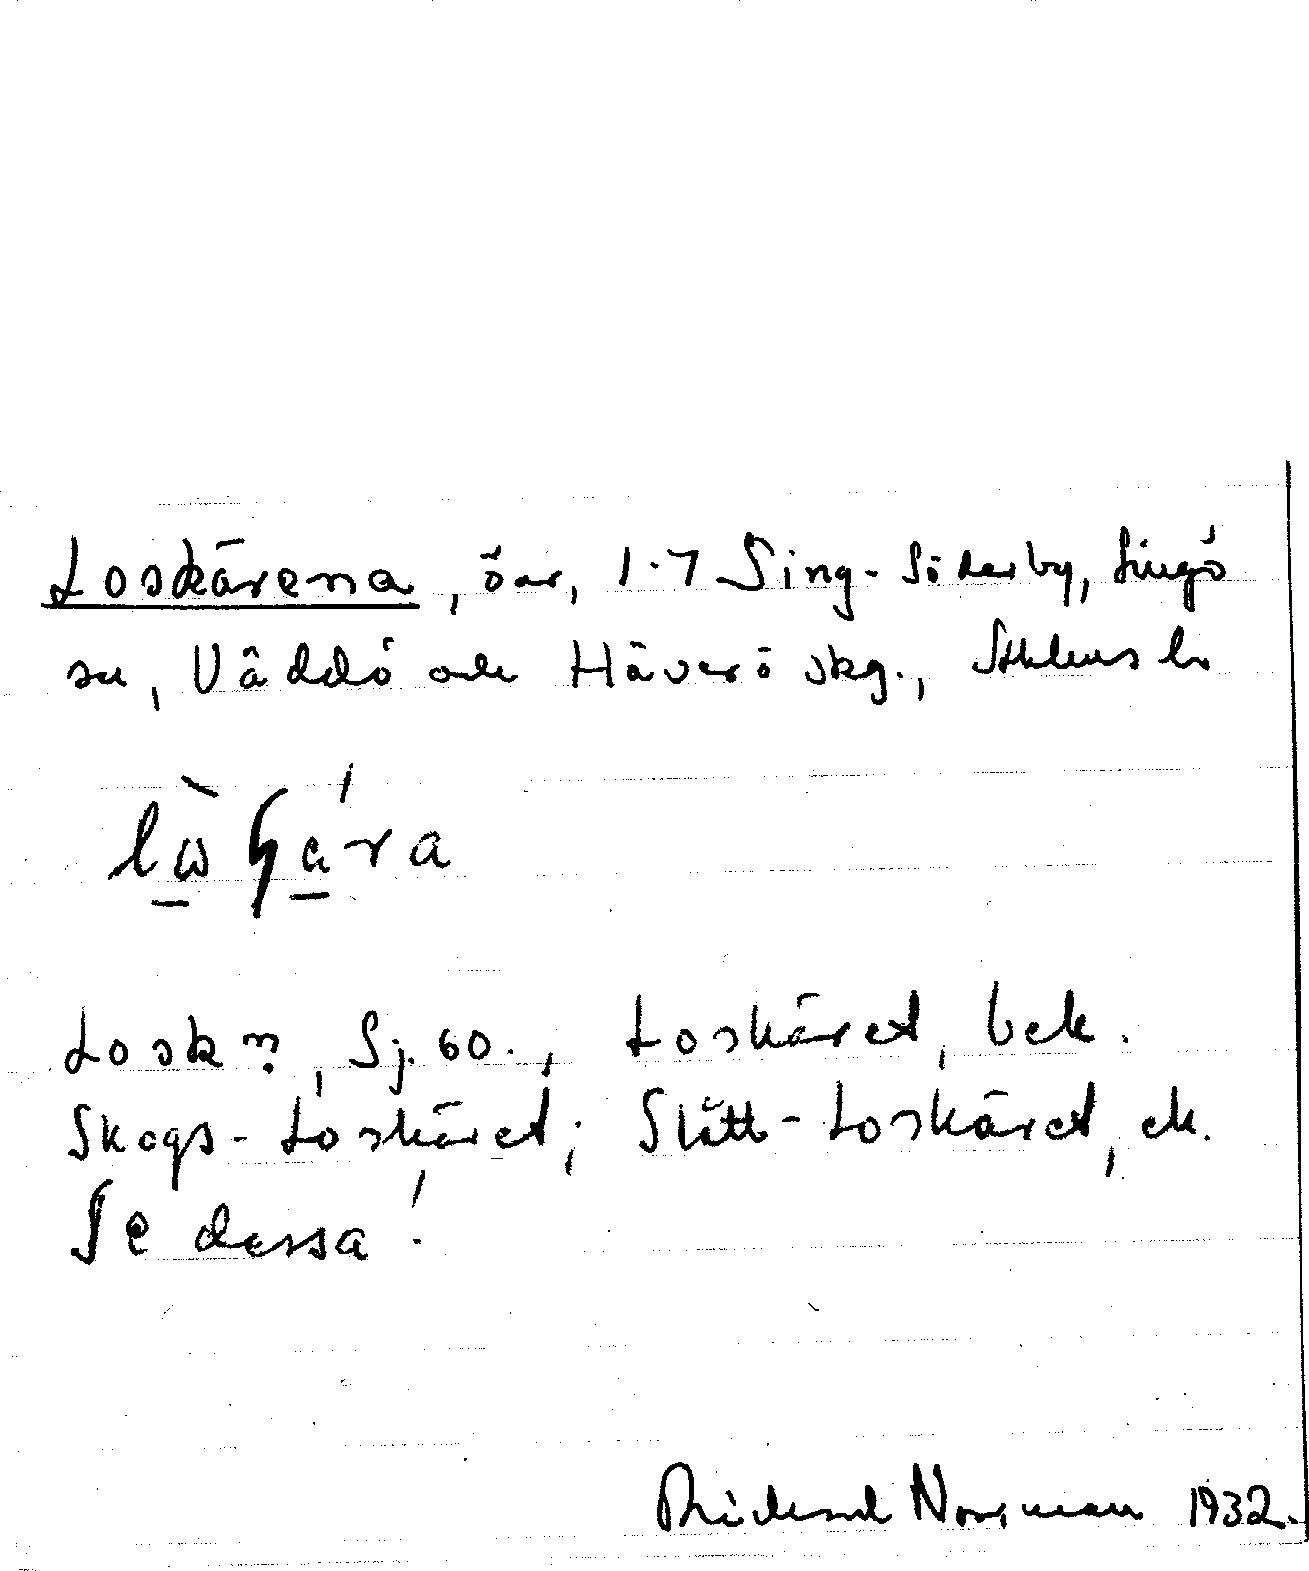 Loskärena, öar, 1:7 Sing-Söderby, Singö
sn, Väddö och Häverö skg., Sthlms l.
Losk ?, Sj. 60., Loskäret, bek.
Skogs-Loskäret; Slätt-Loskäret, ek.
Se dessa!
Rickard Norrman 1932.